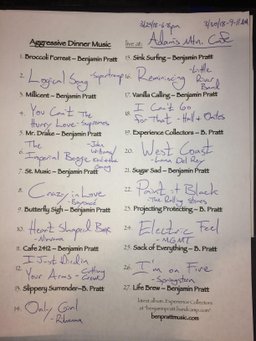 3/29/18 - 6-8pm
3/30/18 - 9-11 AM
Aggressive Dinner Music
live at: Adam's Mtn. Cafe
1. Broccoli Forrest – Benjamin Pratt
2. Logical Song - Supertramp
3. Millicent – Benjamin Pratt
4. You Can't Hurry Love - The Supremes
5. Mr. Drake – Benjamin Pratt
6. The Imperial Boogie - John Williams/
7. St. Music – Benjamin Pratt
8. Crazy in Love - Beyoncé
9. Butterfly Sigh – Benjamin Pratt
10. Heart Shaped Box - Nirvana
11. Cafe 2412 – Benjamin Pratt
12. I Just Died in Your Arms - Cutting Crew
13. Slippery Surrender – B. Pratt
14. Only Girl - Rihanna
15. Sink Surfing – Benjamin Pratt
16. Reminiscing - Little River Band
17. Vanilla Calling – Benjamin Pratt
18. I Can't Go For That - Hall & Oates
19. Experience Collectors – B. Pratt
20. West Coast - Lana Del Rey
21. Sugar Sad – Benjamin Pratt
22. Paint it Black - The Rolling Stones
23. Projecting Protecting – B. Pratt
24. Electric Feel - MGMT
25. Sack of Everything – B. Pratt
26. I'm on Fire - Springsteen
27. Life Brew – Benjamin Pratt
latest album, Experience Collectors
at "benjaminpratt.bandcamp.com"
benprattmusic.com